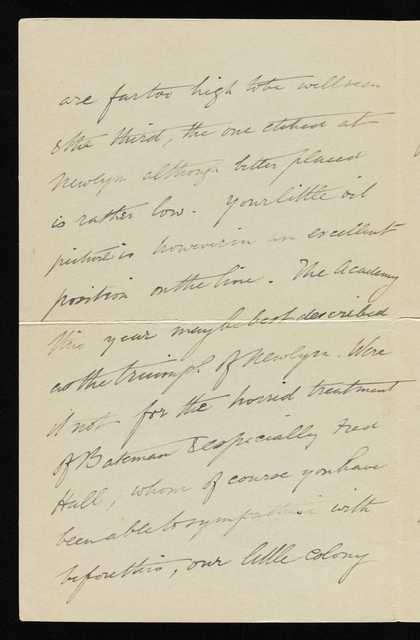 are far too high to be well seen
& the third, the one etched at
Newlyn although better placed
is rather low. Your little oil
picture is however in an excellent
position on the line. The Academy
this year may be best described
as the triumph of Newlyn. Were
it not for the horrid treatment
of Bateman & especially Fred
Hall, whom of course you have
been able to sympathise with
before this, our little colony